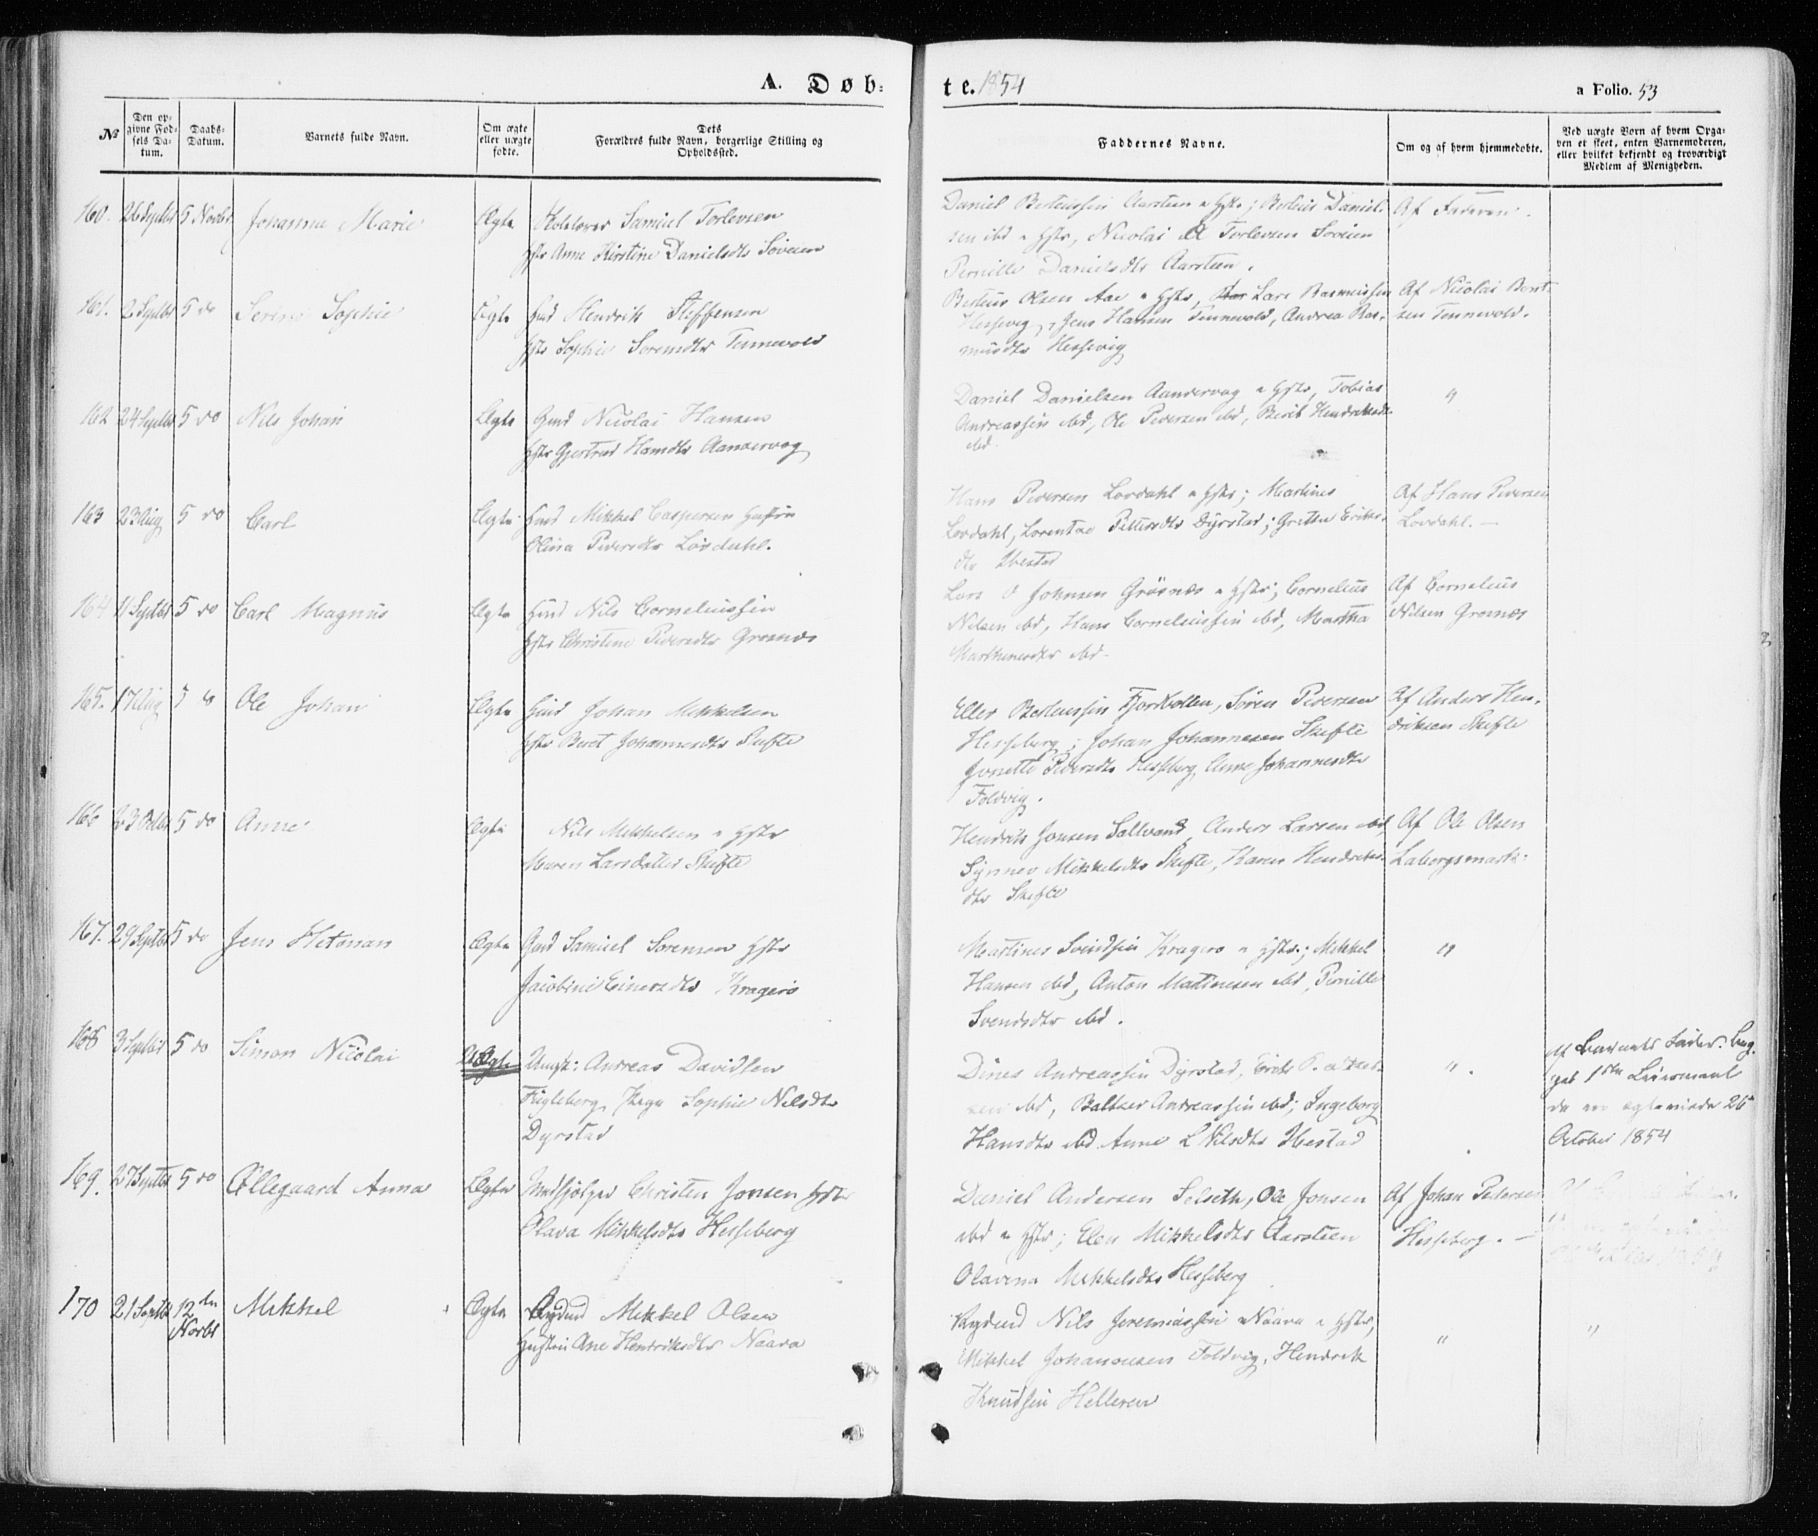 A. Døb-
te. 1854
a Folio. 53
№
Den op-
givne Fød-
sels Da-
tum.
Daabs-
Datum.
Barnets fulde Navn.
Om ægte
eller uægte
fødte.
Dets
Forældres fulde Navn, borgerlige Stilling og
Opholdssted.
Faddernes Navne.
Om og af hvem hjemmedøbte.
Ved uægte Børn af hvem Opga-
ven er skeet, enten Barnemoderen,
eller hvilket bekjendt og troværdigt
Medlem af Menigheden.
160. 26 Septbr 5 Novbr Johanna Marie Ægte Samuel Torlevsen
Hstr Anne Kirstine Danielsdtr Søveien
Daniel Berteussen Aarsteen & Hstr; Berteus Daniel-
sen ibd & Hstr, Nicolai Torlevsen Søveien
Pernille Danielsdtr Aarsteen.
Af Faderen.
161. 2 Septbr 5 do Serine Sophie Ægte Gmd Hendrik Steffensen
Hstr Sophie Sørensdtr Tennevold
Berteus Olsen Aae & Hstr, Lars Rasmussen
Hessevig, Jens Hansen Tennevold, Andrea Ras-
musdtr Hessevig
Af Nicolai Bent-
sen Tennevold.
162 24 Septbr 5 do Nils Johan Ægte Gmd Nicolai Hansen
Hstr Gjertrud Hansdtr Aandervag
Daniel Danielsen Aandervag & Hstr, Tobias
Andreassen ibd, Ole Pedersen ibd, Berit Hendriksdtr
ibd
"
163 23 Aug 5 do Carl Ægte Gmd Mikkel Caspersen Hustru
Olina Pedersdtr Løvdahl.
Hans Pedersen Lovdahl & Hstr; Martines
Lovdahl, Lorentse Pettersdtr Dyrstad; Grethe Eriks-
dtr Ibestad
Af Hans Pedersen
Lovdahl.
164 11 Septbr 5 do Carl Magnus Ægte Gmd Nils Corneliussen
Hstr Christine Pedersdtr Grosnæs
Lars O Johnsen Grøsnæs & Hstr; Cornelius
Nilsen ibd, Hans Corneliussen ibd, Martha
Marthinesdtr ibd.
Af Cornelius
Nilsen Grosnæs
165. 17 Aug 5 do Ole Johan Ægte Gmd Johan Mikkelsen
Hstr Beret Johannesdtr Skefte
Elles Berteussen Fjordbotten, Søren Pedersen
Hesseberg; Johan Johannesen Skefte
Jonette Pedersdtr Hesseberg, Anne Johannesdtr
Foldvig.
Af Anders Hen-
driksen Skefte
166 23 Octbr 5 do Anne Ægte Nils Mikkelsen & Hstr
Maren Larsdatter Skefte
Hendrik Jonsen Sallvand, Anders Larsen ibd
Synnev Mikkelsdtr Skefte, Karen Hendriks-
dtr Skefte
Af Ole Olsen
Labergsmark.
167. 29 Septbr 5 do Jens Hetman Ægte Gmd Samuel Sorensen Hstr
Jacobine Einersdtr Kragerø
Martines Svendsen Kragerø & Hstr; Mikkel
Hansen ibd, Anton Martinesen ibd, Pernille
Svendsdtr ibd.
"
168 3 Septbr 5 do Simon Nicolai Uægte Ungk: Andreas Davidsen
Fugleberg, Pige Sophie Nilsdtr
Dyrstad
Dines Andreassen Dyrstad, Erik
ibd, Baltzer Andreassen ibd; Ingeborg
Hansdtr ibd Anne L Nilsdtr Ibestad
"
Af Barnets Fader. Beg.
1ste Leiermaal
October 1854
169. 27 Septbr 5 do Ollegaard Anna Ægte Christen Jonsen Hstr
Olava Mikkelsdtr Hesseberg
Daniel Andersen Selseth, Ole Jonsen
ibd & Hstr; Elen Mikkelsdtr Aarsteen
Olavina Mekkelsdtr Hesseberg
Af Johan Pedersen
Hesseberg.
170 21 Septbr 12te
Novbr Mikkel Ægte Mikkel Olsen
Hustru Ane Hendriksdtr Naava
Nils Jeremiassen Naava & Hstr,
Mikkel Johannesen Foldvig, Hendrik
Knudsen Helleren
"
"